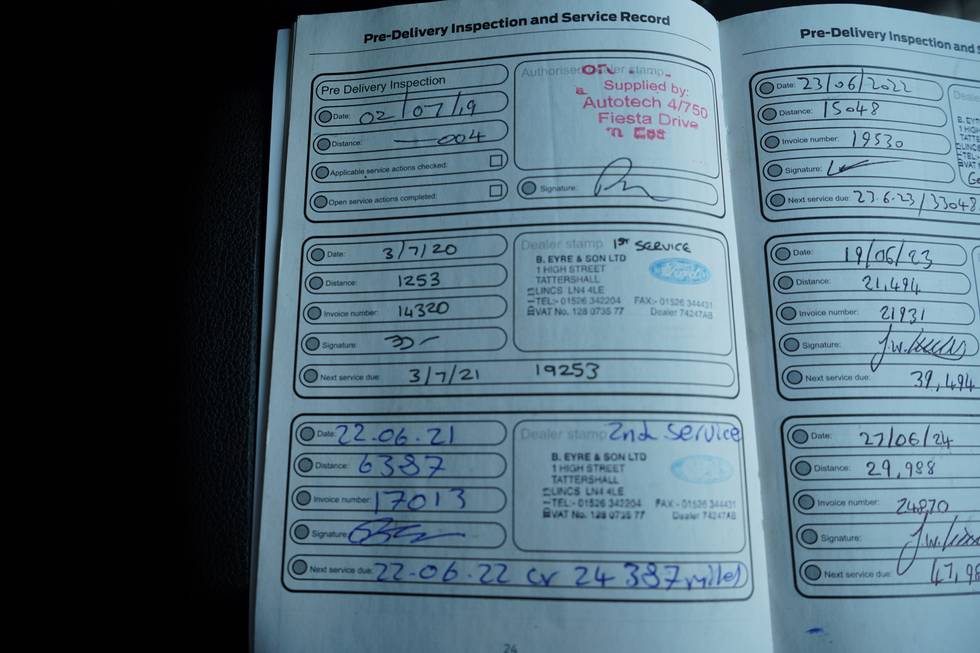 Pre-Delivery Inspection and Service Record
Pre Delivery Inspection
Date: 02/07/19
Distance: 004
Applicable service actions checked:
Open service actions completed:
Authorised dealer stamp
Supplied by:
Autotech 4/750
Fiesta Drive
Signature:
Date: 3/7/20
Distance: 1253
Invoice number: 14320
Signature:
Next service due: 3/7/21 19253
Dealer stamp 1st SERVICE
B. EYRE & SON LTD
1 HIGH STREET
TATTERSHALL
LINCS LN4 4LE
TEL:- 01526 342204 FAX:- 01526 344431
VAT No. 128 0735 77 Dealer 74247AB
Ford
Date: 22-06-21
Distance: 6387
Invoice number: 17013
Signature:
Next service due: 22-06-22 or 24 387 miles
Dealer stamp 2nd Service
B. EYRE & SON LTD
1 HIGH STREET
TATTERSHALL
LINCS LN4 4LE
TEL:- 01526 342204 FAX:- 01526 344431
VAT No. 128 0735 77 Dealer 74247AB
24
Pre-Delivery Inspection and
Date: 23/06/2022
Distance: 15048
Invoice number: 19530
Signature:
Next service due: 23.6.23/33048
Date: 19/06/23
Distance: 21,494
Invoice number: 21931
Signature:
Next service due: 39,494
Date: 27/06/24
Distance: 29,988
Invoice number: 24870
Signature:
Next service due: 47,98